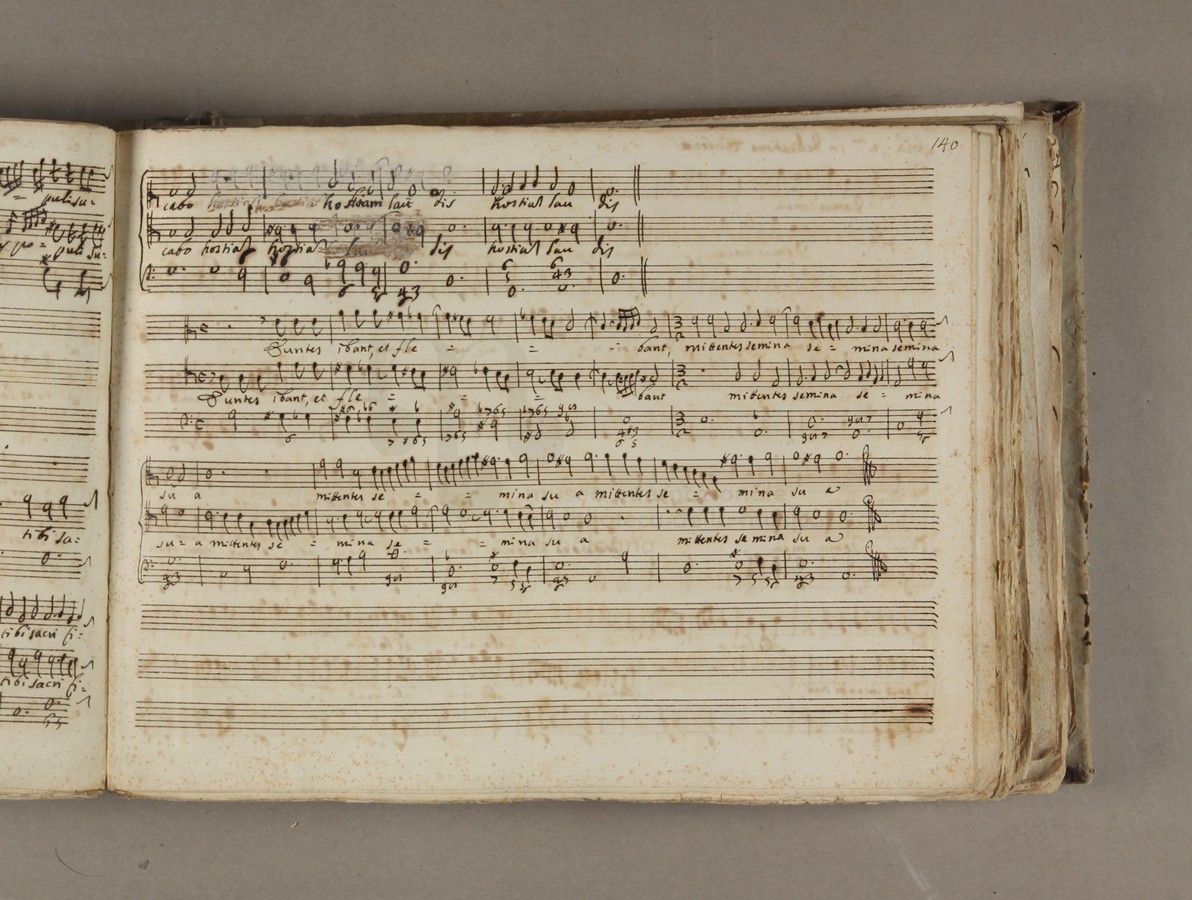 140
puli su-
cabo hostiam lau dis hostias lau dis
puli su-
cabo hostias hostias lau dis hostias lau dis
Euntes ibant, et fle = = - bant, mittentes semina se = mina semina
Euntes ibant, et fle = = = bant mittentes semina se = mina
su a mittentes se = = mina su a mittentes se = mina su a
tibi sa-
su = a mittentes se = mina se = = mina su a mittentes semina su a
tibi sacri fi-
tibi sacri fi-